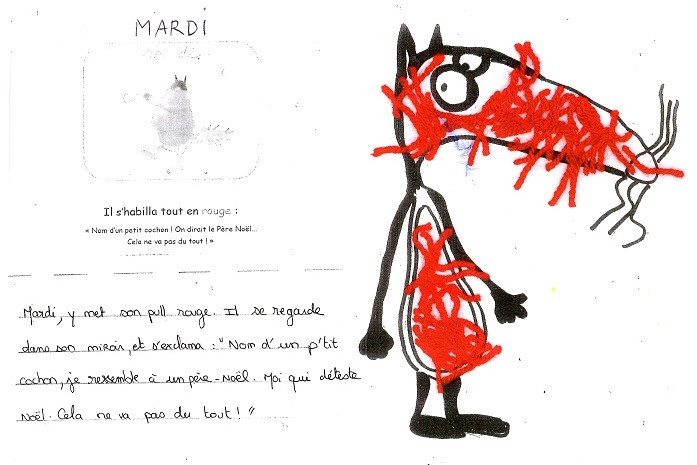 MARDI
Il s'habilla tout en rouge :
« Nom d'un petit cochon ! On dirait le Père Noël...
Cela ne va pas du tout ! »
Mardi, y met son pull rouge. Il se regarde
dans son miroir, et s'exclama : "Nom d'un p'tit
cochon, je ressemble à un père-Noël. Moi qui déteste
Noël. Cela ne va pas du tout ! "